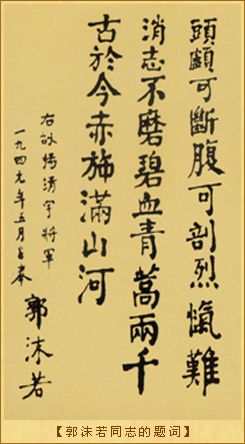 頭顱可斷腹可剖烈愾難
消志不磨碧血青蒿兩千
古於今赤旆滿山河
右楊靖宇將軍
一九四九年五月
郭沫若
【郭沫若同志的题词】